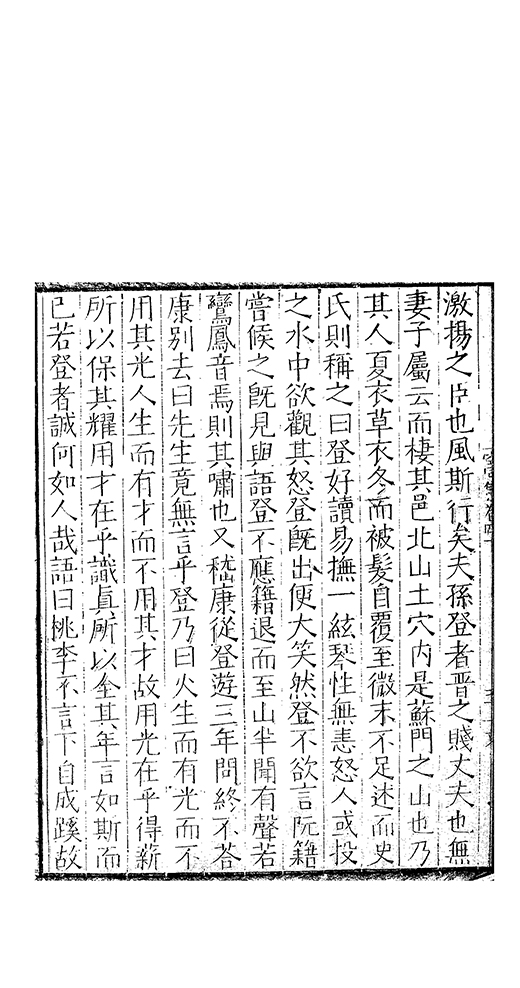 激揚之臣也風斯行矣夫孫登者晉之賤丈夫也無
妻子屬云而棲其邑北山土穴內是蘇門之山也乃
其人夏衣草衣冬而被髮自覆至微末不足述而史
氏則稱之曰登好讀易撫一絃琴性無恚怒人或投
之水中欲觀其怒登旣出便大笑然登不欲言阮籍
嘗候之旣見與語登不應籍退而至山半聞有聲若
鸞鳳音焉則其嘯也又嵇康從登遊三年問終不荅
康別去曰先生竟無言乎登乃曰火生而有光而不
用其光人生而有才而不用其才故用光在乎得薪
所以保其耀用才在乎識眞所以全其年言如斯而
已若登者誠何如人哉語曰桃李不言下自成蹊故